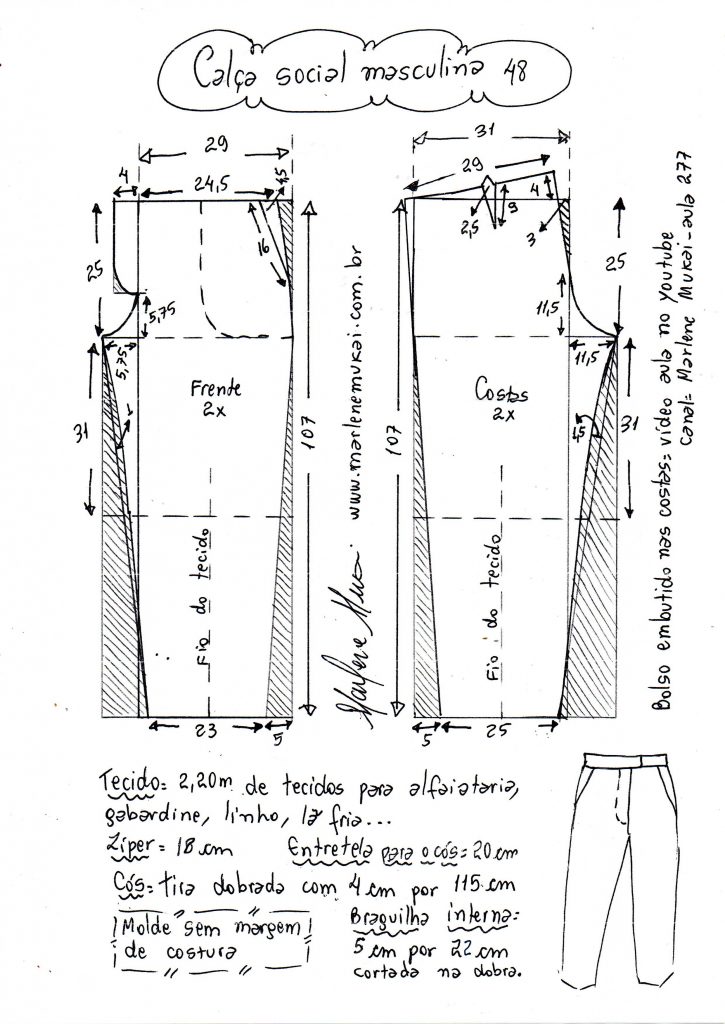 Calça social masculina 48
29
4
24,5
4,5
16
25
5,75
5,75
31
1
Frente
2x
107
Fio do tecido
23
5
www.marlenemukai.com.br
Marlene Mukai
31
29
4
9
2,5
3
25
11,5
11,5
Costas
2x
107
31
Fio do tecido
5
25
Bolso embutido nas costas= vídeo aula no Youtube
canal= Marlene Mukai-aula 277
Tecido= 2,20m de tecidos para alfaiataria,
gabardine, linho, lã fria...
Zíper= 18 cm
Entretela para o cós= 20 cm
Cós= tira dobrada com 4 cm por 115 cm
Molde sem margem
de costura
Braguilha interna=
5 cm por 22 cm
cortada na dobra.